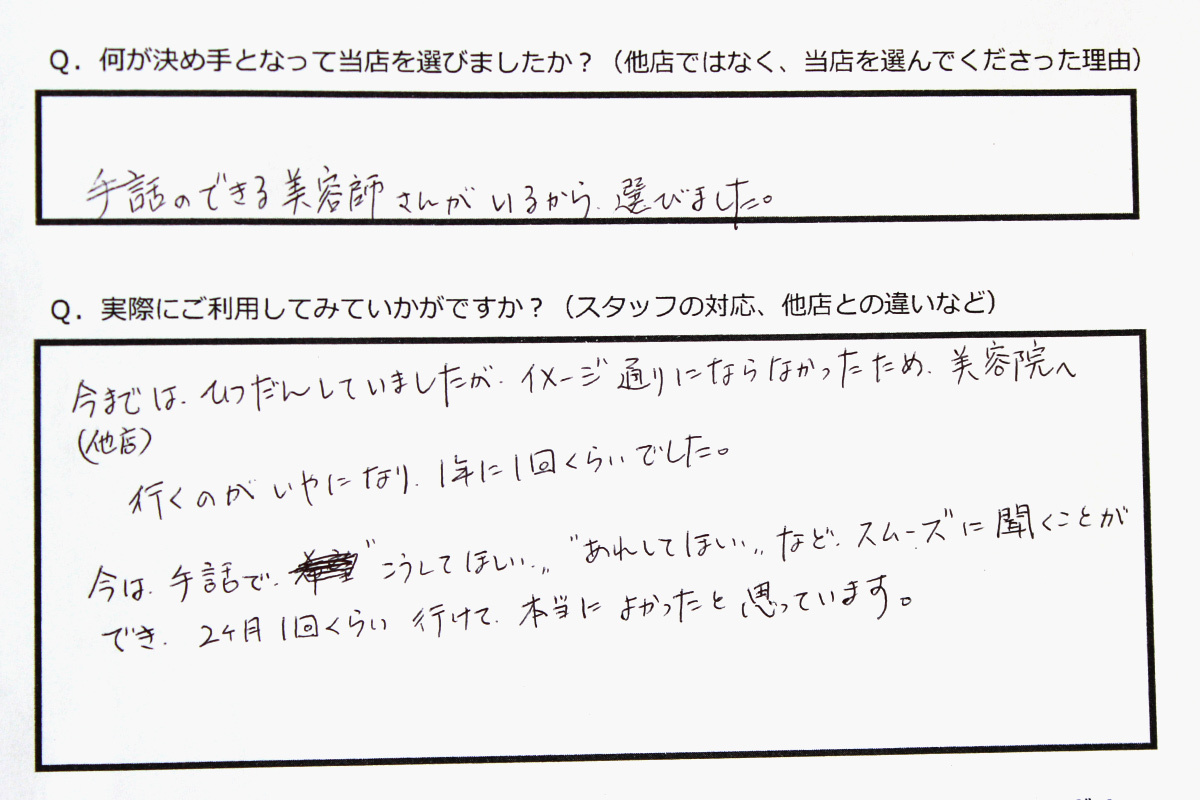 Q．何が決め手となって当店を選びましたか？（他店ではなく、当店を選んでくださった理由）
手話のできる美容師さんがいるから、選びました。
Q．実際にご利用してみていかがですか？（スタッフの対応、他店との違いなど）
今までは、ひつだんしていましたが、イメージ通りにならなかったため、美容院へ
(他店)
行くのがいやになり、1年に1回くらいでした。
今は、手話で、"こうしてほしい、" "あれしてほしい、" など、スムーズに聞くことが
でき、2ヶ月1回くらい行けて、本当によかったと思っています。